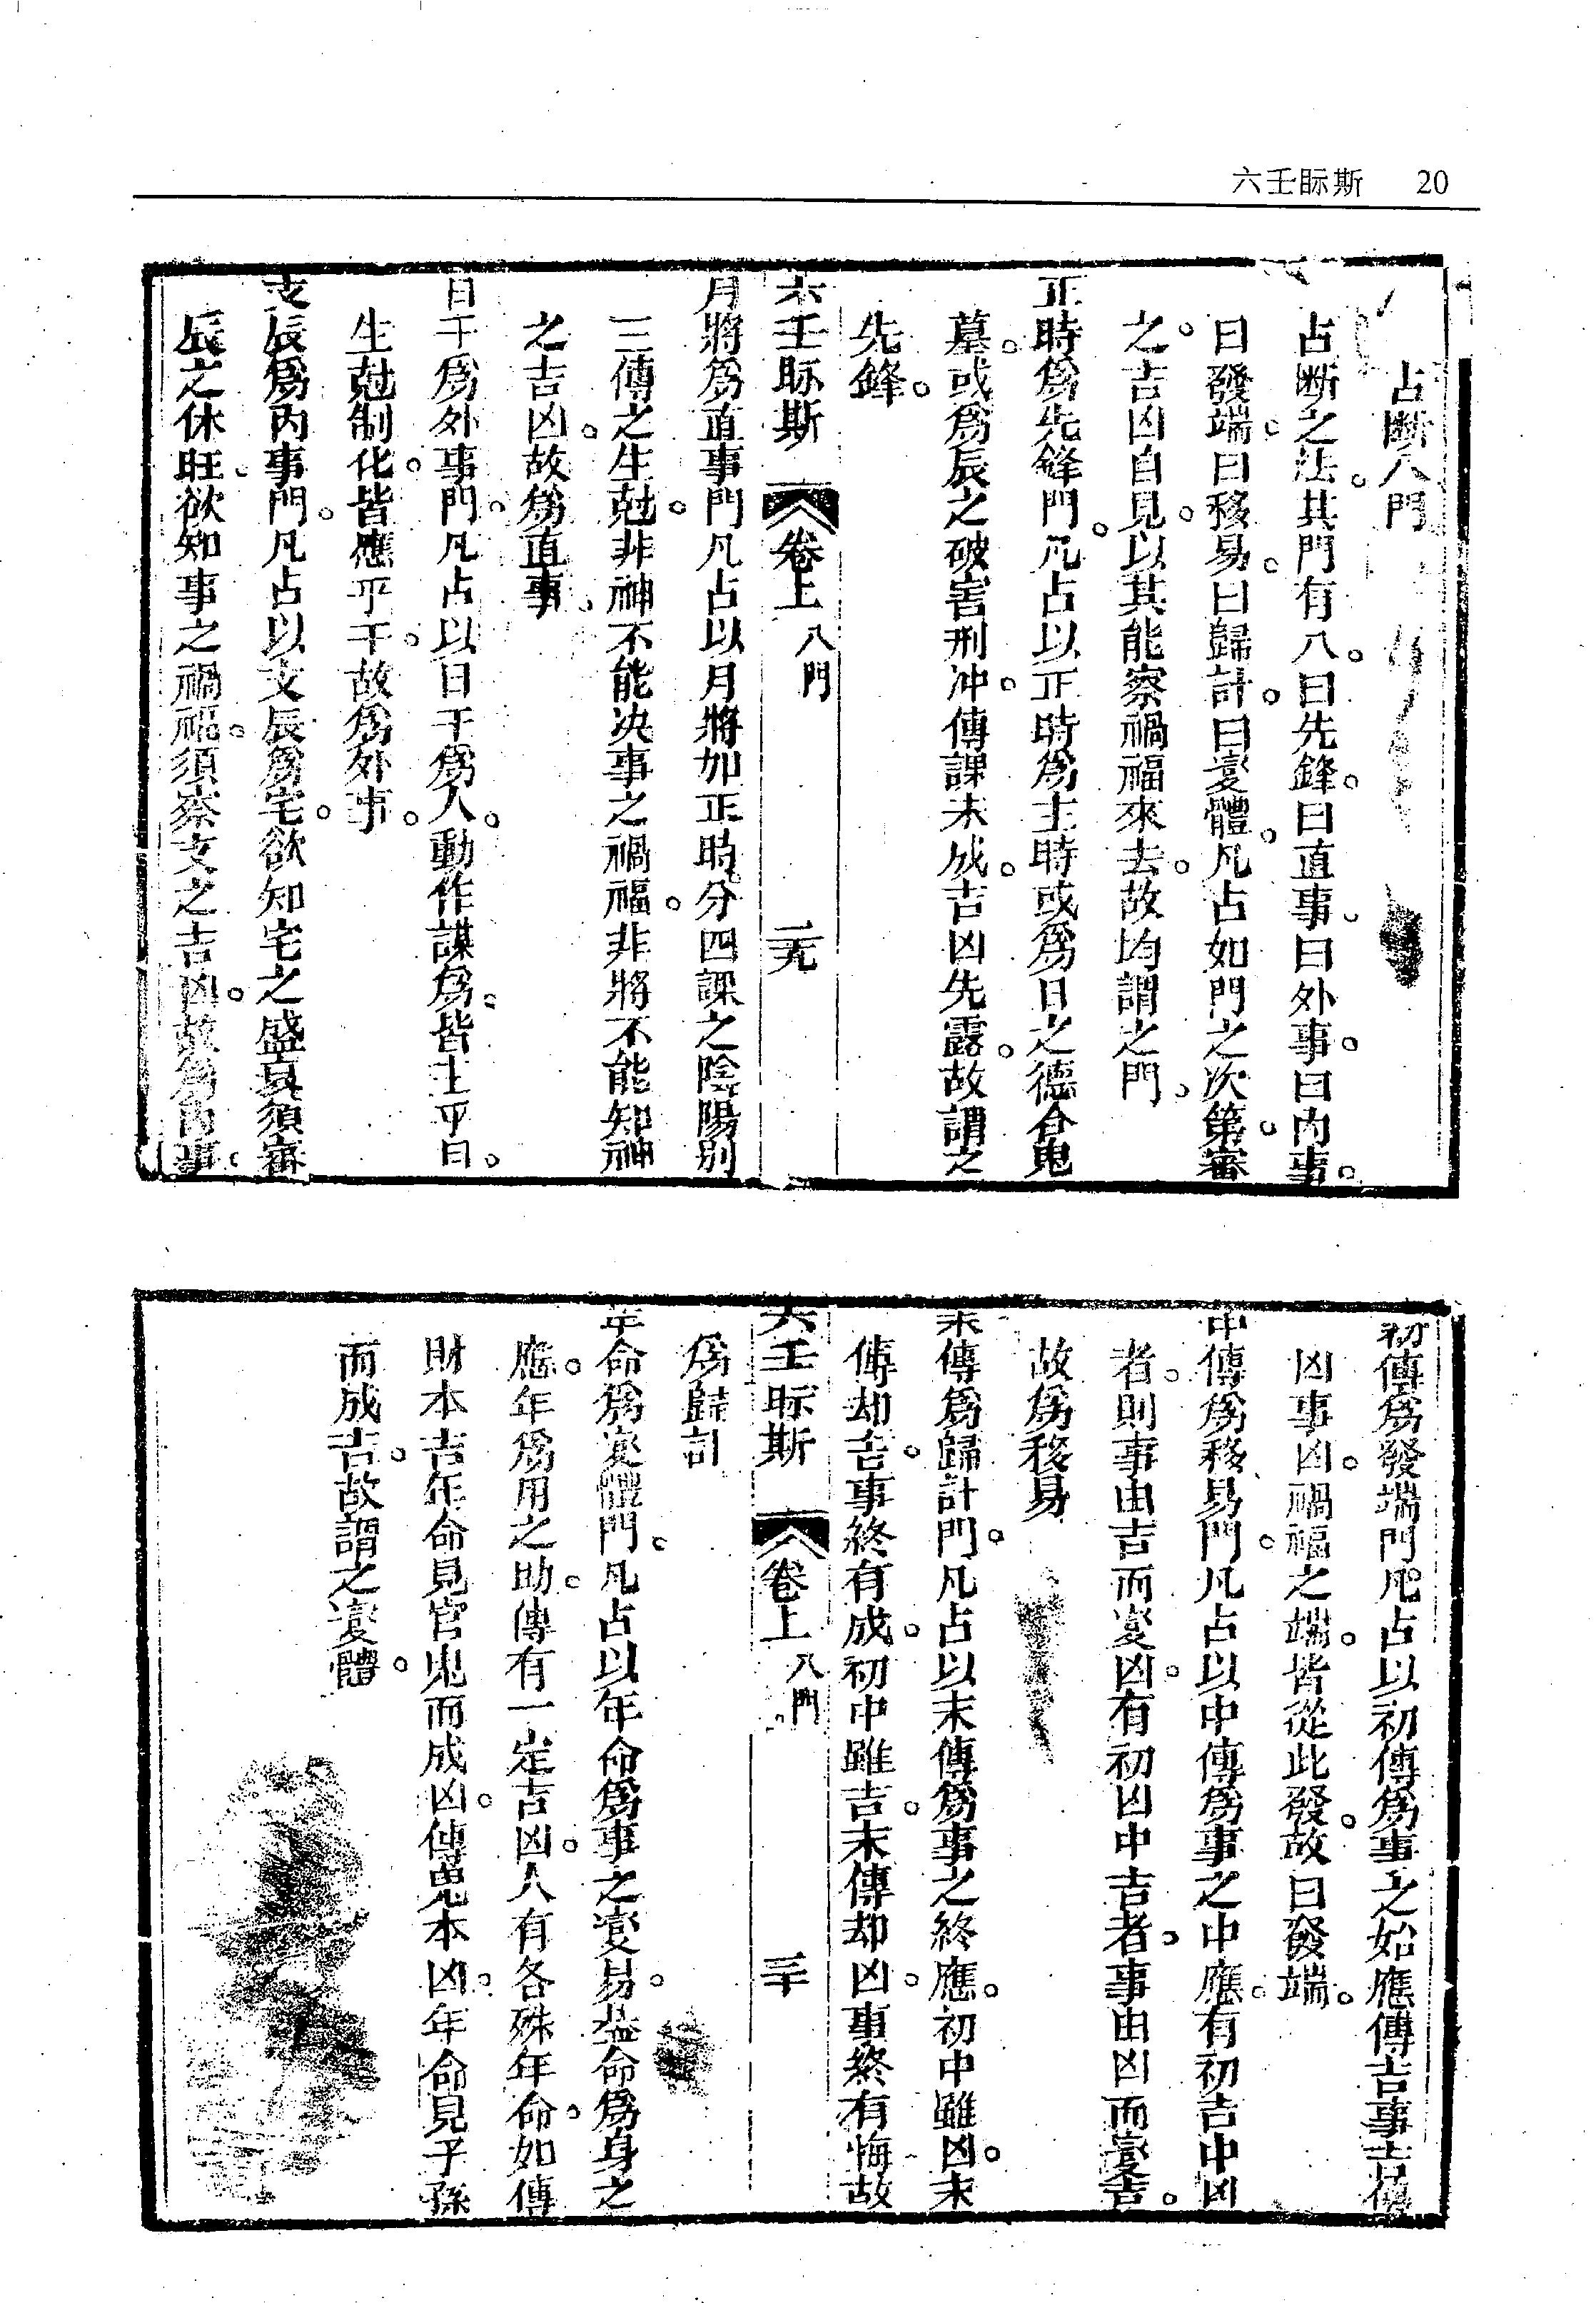 六壬眎斯 20
占斷八門
占斷之法。其門有八。曰先鋒。曰直事。曰外事。曰內事。
曰發端。曰移易。曰歸計。曰変體。凡占如門之次第。審
之。吉凶自見。以其能察禍福來去。故均謂之門。
正時爲先鋒門。凡占以正時爲主時或爲日之德合鬼
墓。或爲辰之破害刑冲。傳課未成。吉凶先露。故謂之
先鋒。
六壬眎斯 卷上 八門 二九
月將爲直事門凡占以月將加正時。分四課之陰陽別
三傳之生尅。非神不能决事之禍福。非將不能知神
之吉凶。故爲直事。
日干爲外事門。凡占以日干爲人。動作謀爲。皆主乎日。
生尅制化。皆應乎干。故爲外事。
支辰爲內事門。凡占以支辰爲宅。欲知宅之盛衰須審
辰之休旺。欲知事之禍福。須察支之吉凶。故爲內事。
初傳爲發端門凡占以初傳爲事之始應傳吉事吉傳
凶事凶。禍福之端。皆從此發。故曰發端。
中傳爲移易門。凡占以中傳爲事之中應。有初吉中凶
者。則事由吉而変凶。有初凶中吉者。事由凶而変吉。
故爲移易
末傳爲歸計門。凡占以末傳爲事之終應。初中雖凶。末
傳却吉。事終有成。初中雖吉。末傳却凶。事終有悔故
爲歸計
六壬眎斯 卷上 八門 三十
年命爲変體門。凡占以年命爲事之変易。益命爲身之
應。年爲用之助。傳有一定吉凶。人有各殊年命。如傳
財本吉年命見官鬼而成凶。傳鬼本凶。年命見子孫
而成吉。故謂之変體。